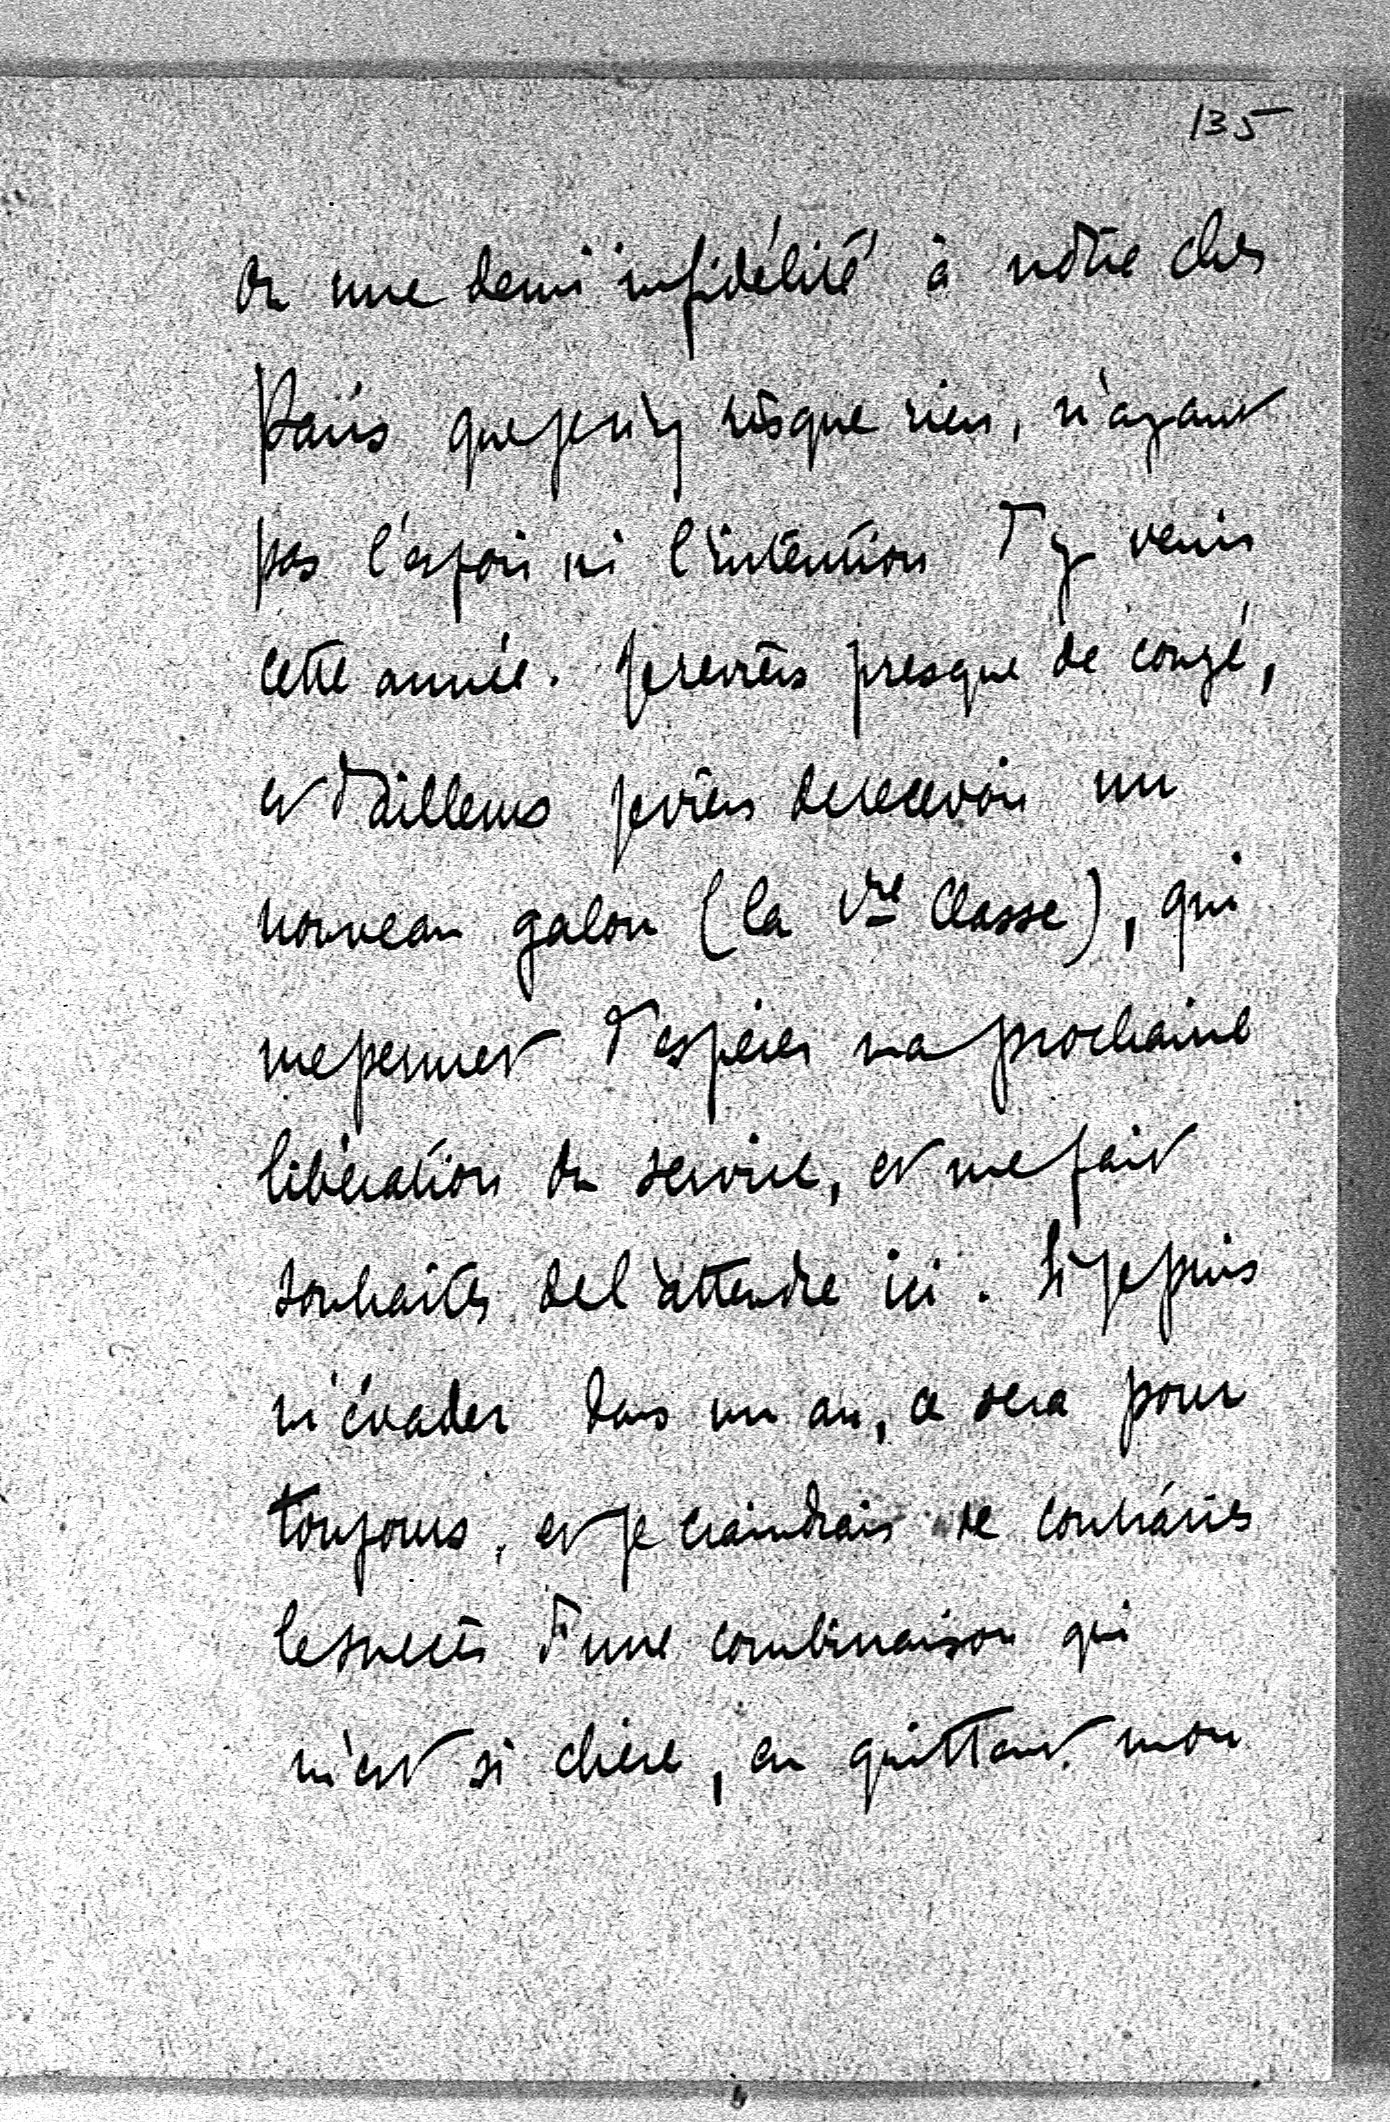 135
ou une demi infidélité à notre cher
Paris que je n'y risque rien, n'ayant
pas l'espoir ni l'intention d'y venir
cette année. Je reviens presque de congé,
et d'ailleurs je viens de recevoir un
nouveau galon (la 1re Classe), qui
me permet d'espérer ma prochaine
libération du service, et me fait
souhaiter de l'attendre ici. Si je puis
m'évader dans un an, ce sera pour
toujours, et je craindrais de contrarier
le succès d'une combinaison qui
m'est si chère, en quittant mon